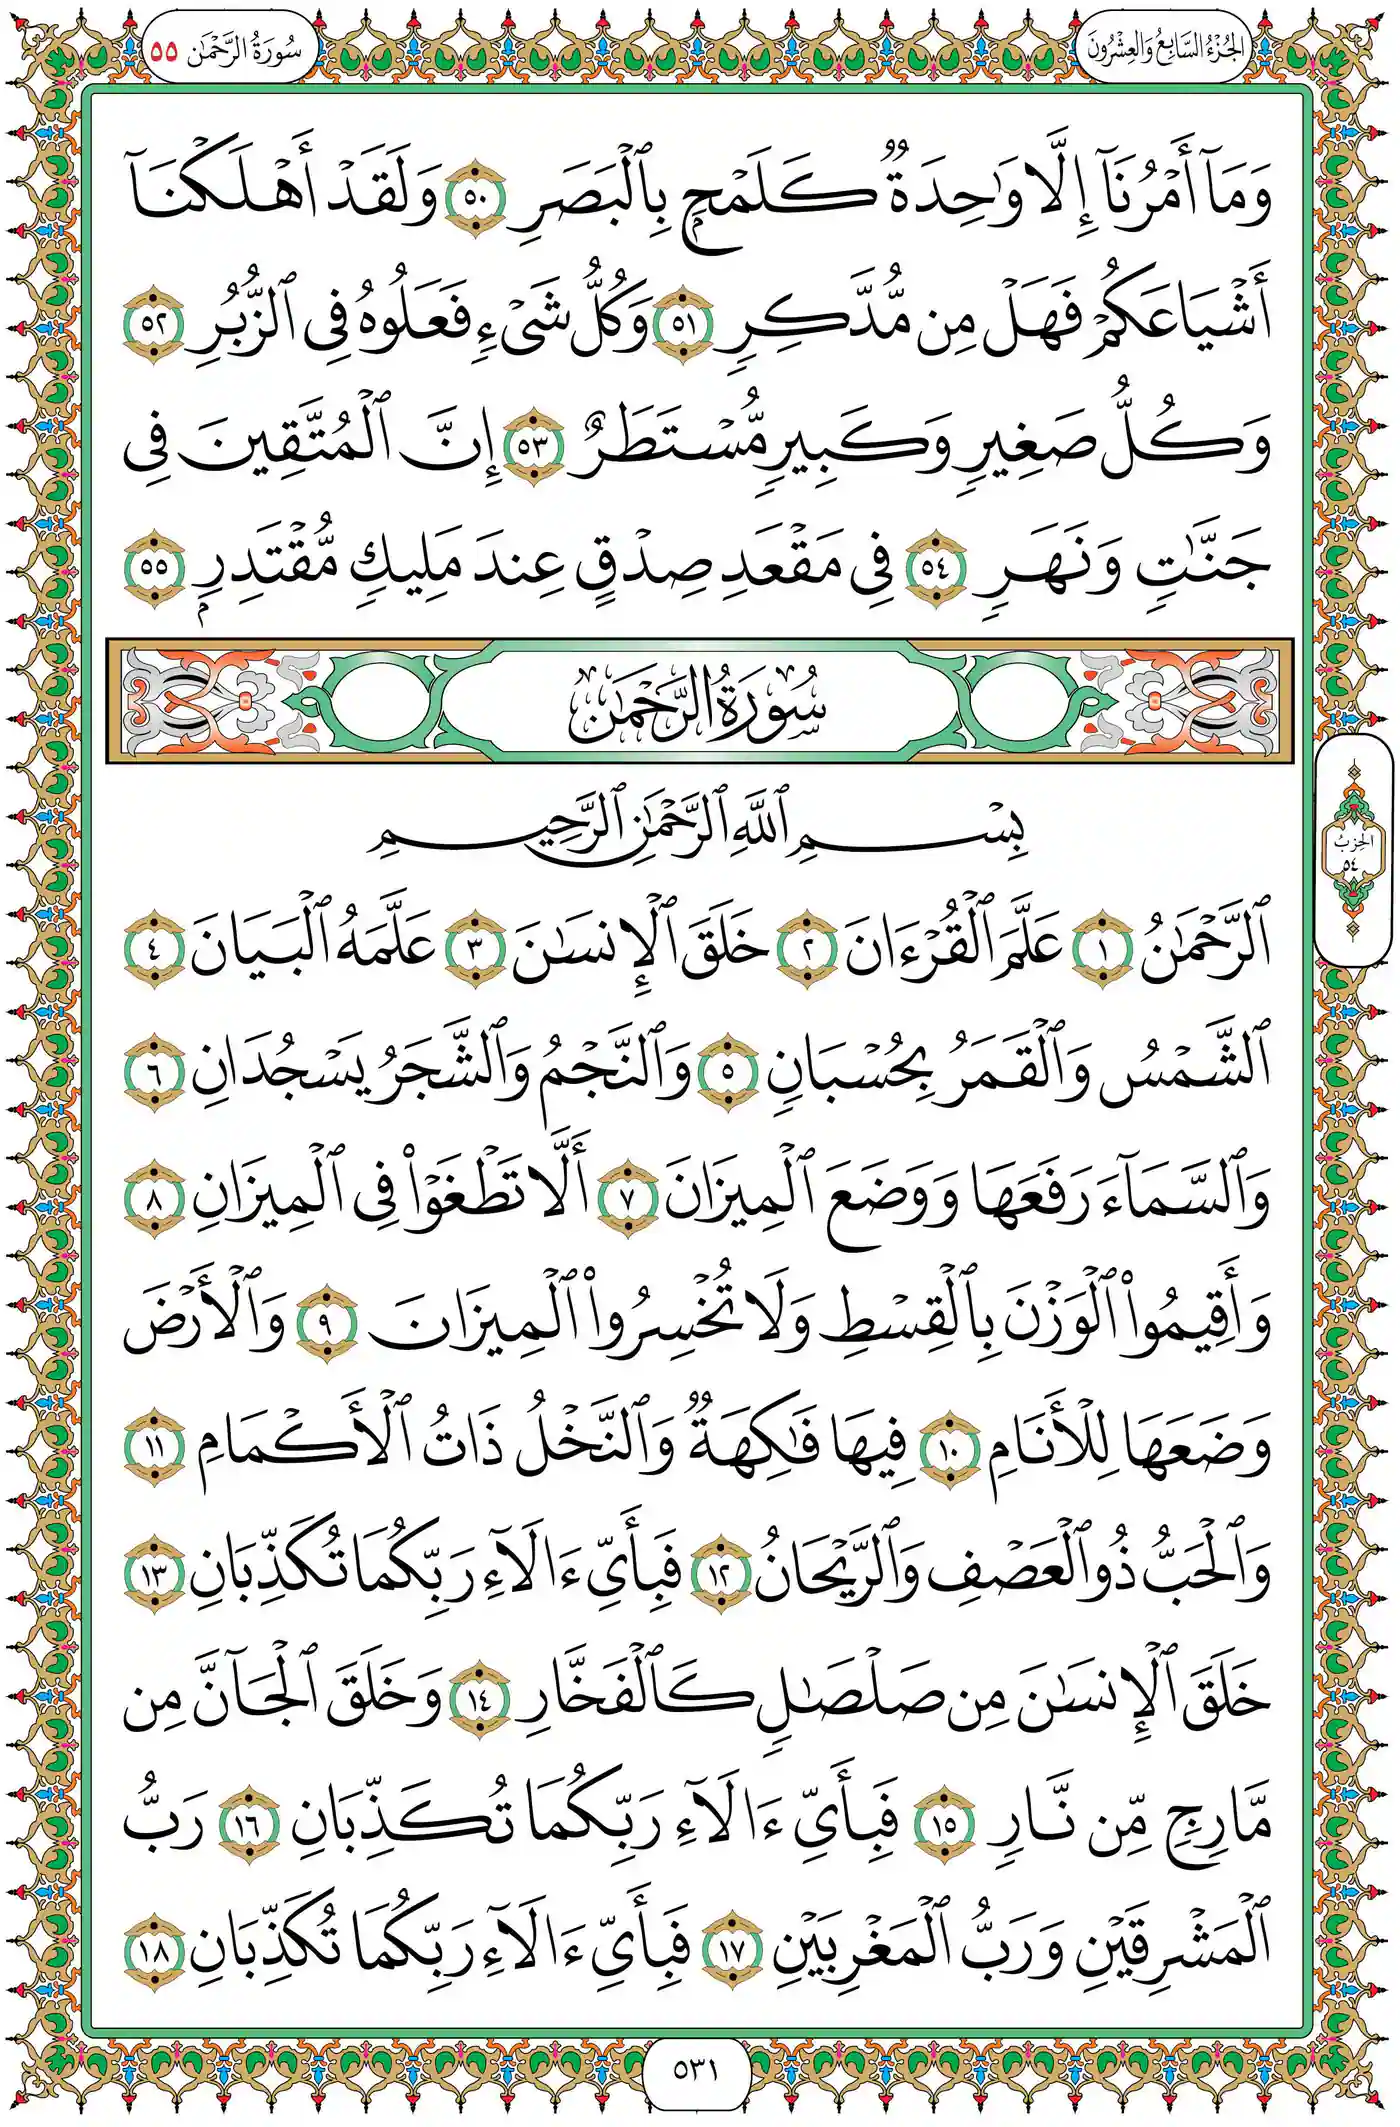 الجُزْءُ السَّابِعُ وَالعِشْرُونَ
سُورَةُ الرَّحْمَٰن ٥٥
وَمَآ أَمْرُنَآ إِلَّا وَٰحِدَةٌ كَلَمْحٍۭ بِٱلْبَصَرِ ٥٠ وَلَقَدْ أَهْلَكْنَآ
أَشْيَاعَكُمْ فَهَلْ مِن مُّدَّكِرٍ ٥١ وَكُلُّ شَىْءٍ فَعَلُوهُ فِى ٱلزُّبُرِ ٥٢
وَكُلُّ صَغِيرٍ وَكَبِيرٍ مُّسْتَطَرٌ ٥٣ إِنَّ ٱلْمُتَّقِينَ فِى
جَنَّٰتٍ وَنَهَرٍ ٥٤ فِى مَقْعَدِ صِدْقٍ عِندَ مَلِيكٍ مُّقْتَدِرٍۭ ٥٥
سُورَةُ الرَّحْمَٰن
بِسْمِ ٱللَّهِ ٱلرَّحْمَٰنِ ٱلرَّحِيمِ
ٱلرَّحْمَٰنُ ١ عَلَّمَ ٱلْقُرْءَانَ ٢ خَلَقَ ٱلْإِنسَٰنَ ٣ عَلَّمَهُ ٱلْبَيَانَ ٤
ٱلشَّمْسُ وَٱلْقَمَرُ بِحُسْبَانٍ ٥ وَٱلنَّجْمُ وَٱلشَّجَرُ يَسْجُدَانِ ٦
وَٱلسَّمَآءَ رَفَعَهَا وَوَضَعَ ٱلْمِيزَانَ ٧ أَلَّا تَطْغَوْا۟ فِى ٱلْمِيزَانِ ٨
وَأَقِيمُوا۟ ٱلْوَزْنَ بِٱلْقِسْطِ وَلَا تُخْسِرُوا۟ ٱلْمِيزَانَ ٩ وَٱلْأَرْضَ
وَضَعَهَا لِلْأَنَامِ ١٠ فِيهَا فَٰكِهَةٌ وَٱلنَّخْلُ ذَاتُ ٱلْأَكْمَامِ ١١
وَٱلْحَبُّ ذُو ٱلْعَصْفِ وَٱلرَّيْحَانُ ١٢ فَبِأَىِّ ءَالَآءِ رَبِّكُمَا تُكَذِّبَانِ ١٣
خَلَقَ ٱلْإِنسَٰنَ مِن صَلْصَٰلٍ كَٱلْفَخَّارِ ١٤ وَخَلَقَ ٱلْجَآنَّ مِن
مَّارِجٍ مِّن نَّارٍ ١٥ فَبِأَىِّ ءَالَآءِ رَبِّكُمَا تُكَذِّبَانِ ١٦ رَبُّ
ٱلْمَشْرِقَيْنِ وَرَبُّ ٱلْمَغْرِبَيْنِ ١٧ فَبِأَىِّ ءَالَآءِ رَبِّكُمَا تُكَذِّبَانِ ١٨
الحِزْبُ
٥٤
٥٣١